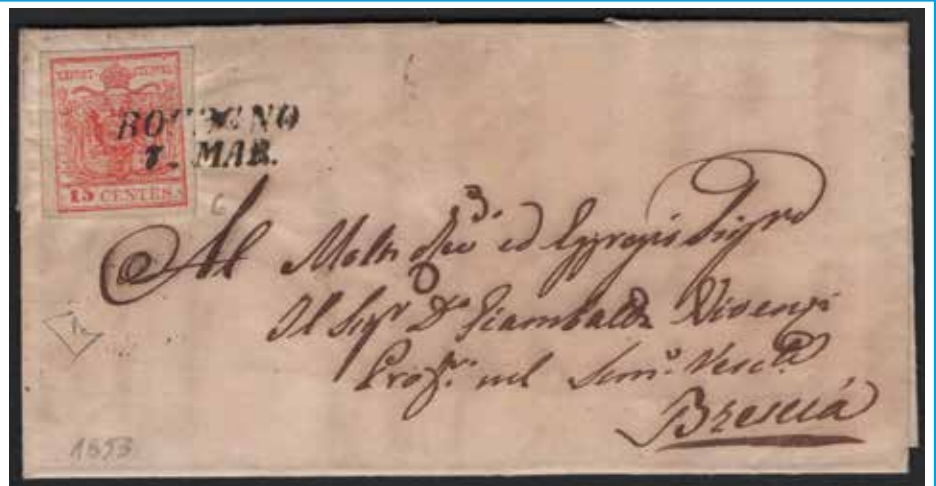 15 CENTES.
7. MAR.
Al Molto Rev.do ed Egregio Sigre
Il Sigr Dn Giambalda
Profr. nel Semo. Vesc.
Brescia
1853